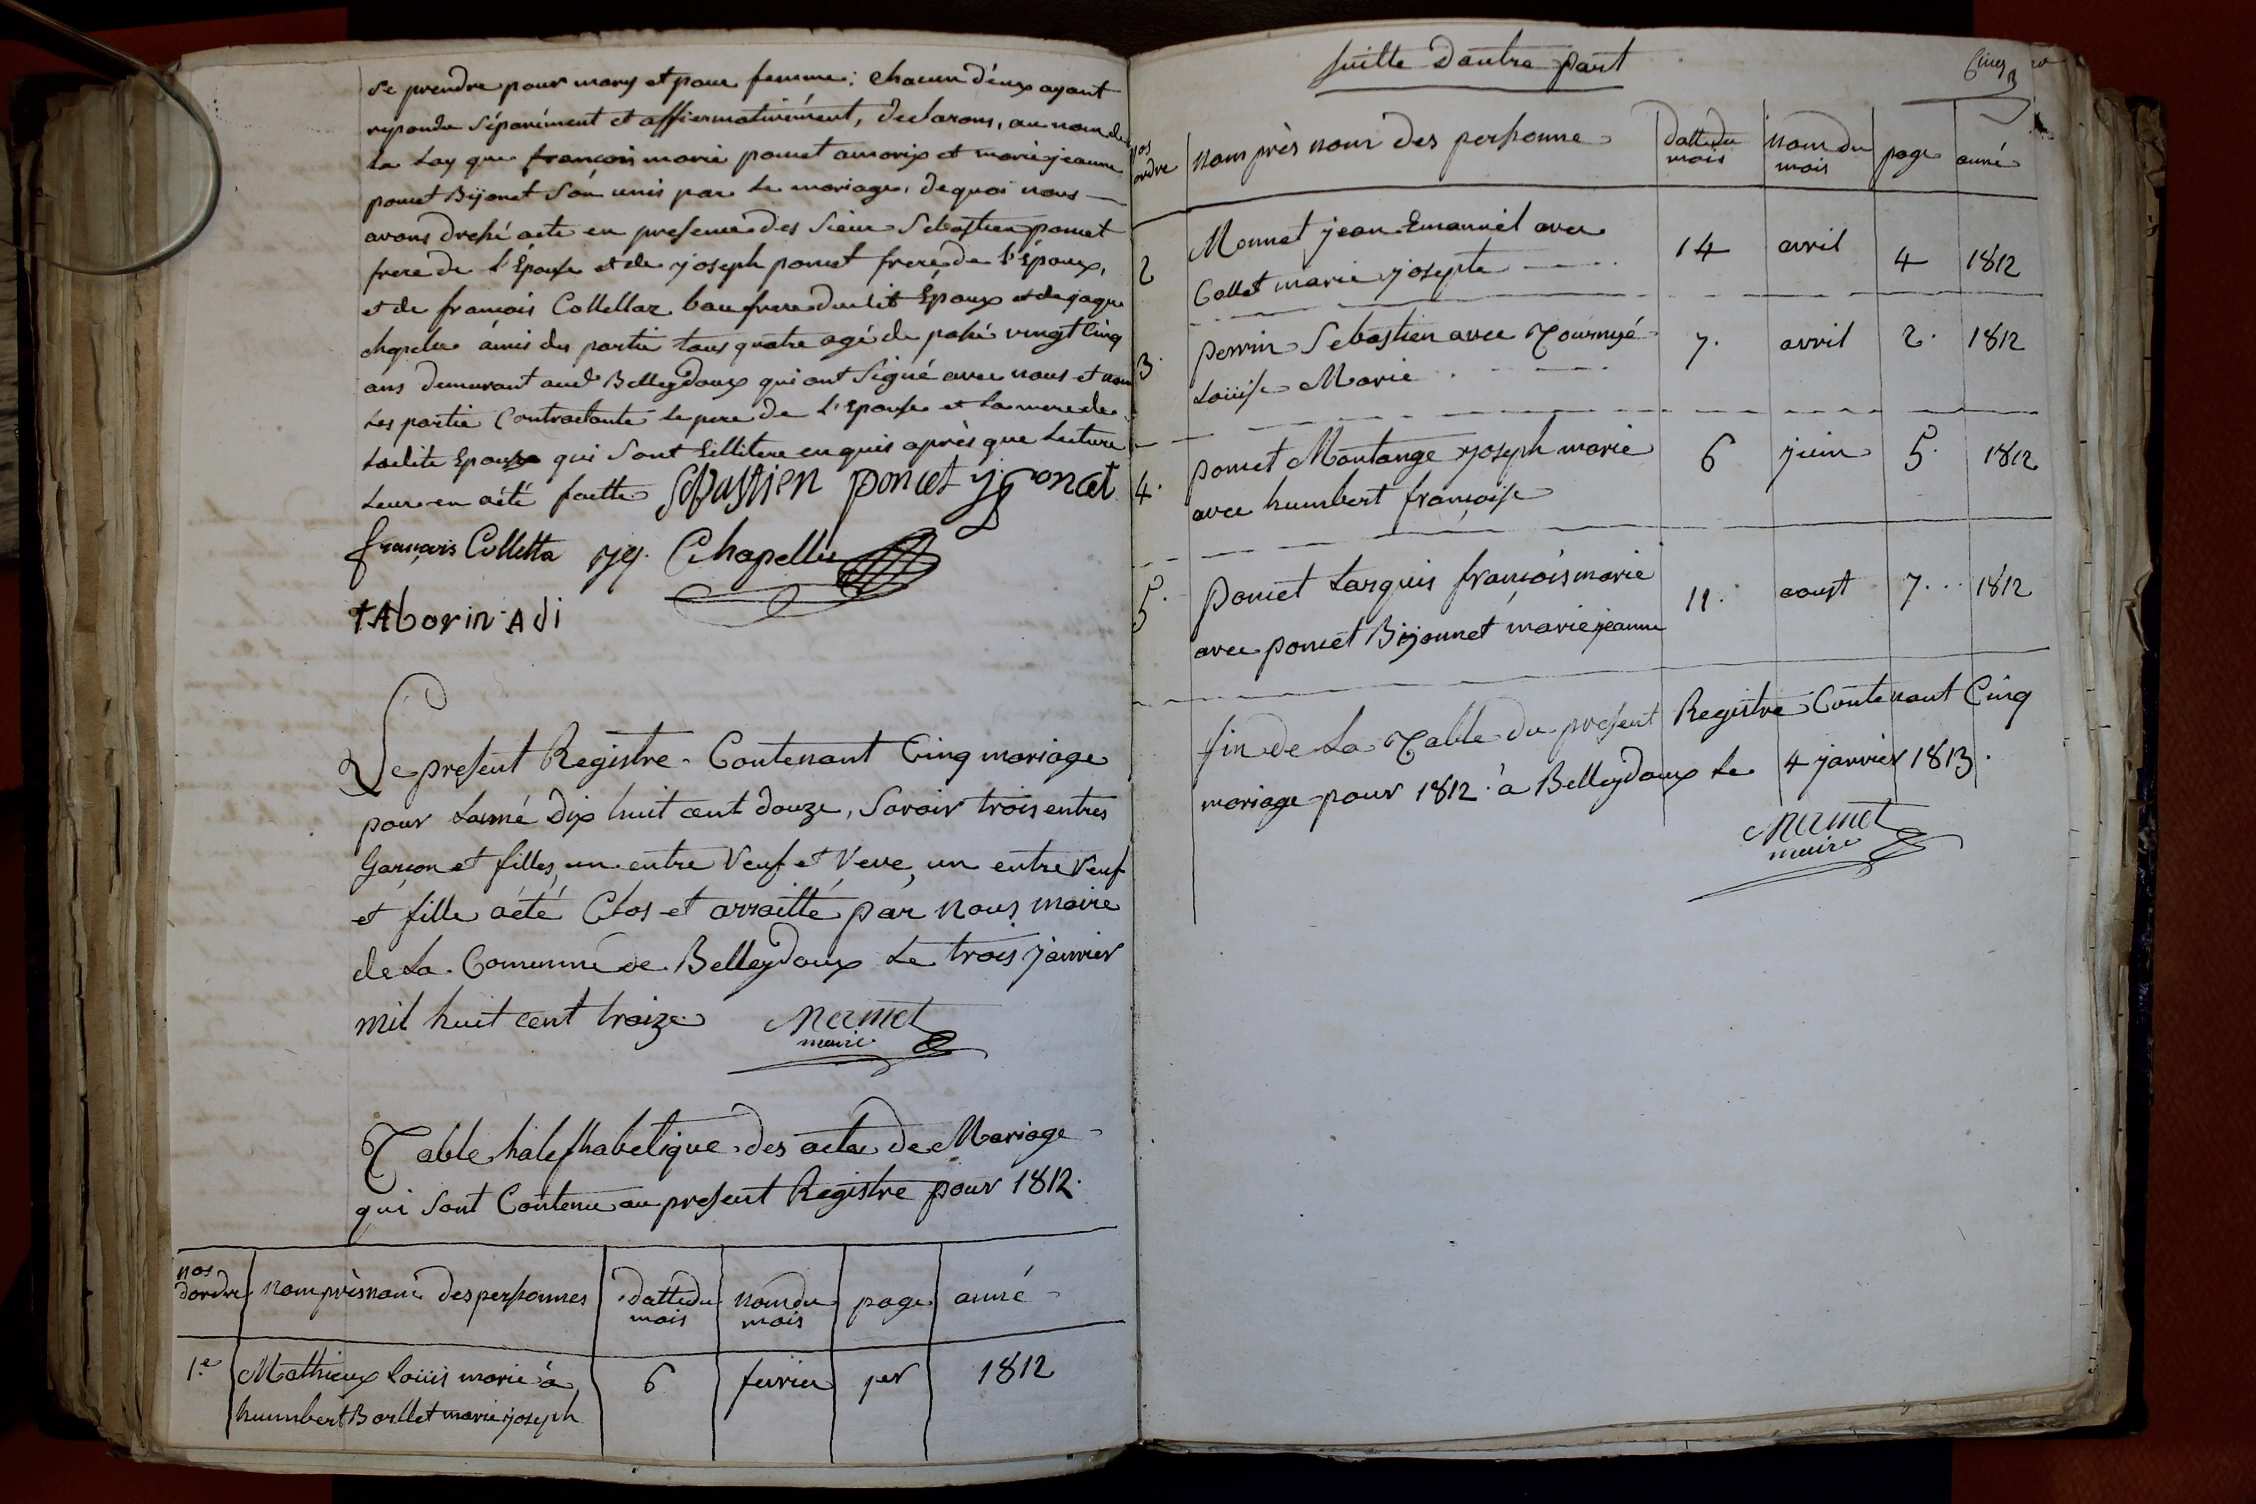 se prendre pour mary et pour femme; chacun d'eux ayant
repondu séparément et affiermativément, declarons, au nom de
la Loy que françois marie poncet amorix et marie jeanne
poncet Bijonet son unis par le mariage, dequoi nous
avons dressé acte en presence des sieur Sebastien poncet
frere de l'Épouse et de joseph poncet frere de l'Époux,
et de françois Collettaz beaufrere dudit Époux et de jaque
chapelu amis des partie tous quatre agé de passé vingt Cinq
ans demurant aud Belleydoux qui ont signé avec nous et non
les partie Contractante le pere de l'Epouse et la mere de
ladite Epouse qui sont illitere enquis après que lecture
leur en a été faitte Sebastien poncet jj poncet
françois Colletta jj. Chapellu
tAborin Adi
Le present Registre Contenant Cinq mariage
pour lanné Dix huit cent douze, Savoir trois entres
Garçon et filles, un entre Veuf et Veve, un entre Veuf
et fille a été Clos et arraitté par nous maire
de la Commune de Belleydoux Le trois janvier
mil huit cent traize Mermet
maire
Table halephabetique des actes de Mariage
qui sont Contenu au present Registre pour 1812.
nos
dordre nom près nom des personnes datte du mois nom du mois page anné
1.e Mathieux Loüis marie à 6 fevrier per 1812
humbert Borllet marie joseph
Suitte Dautre part
Cinq
nos
ordre nom près nom des personne datte du mois nom du mois page anné
2 Monnet jean Emanuel avec 14 avril 4 1812
Collet marie josepte
3. perrin Sebastien avec Tournyé 7. avril 2. 1812
Loüise Marie
4. poncet Montange joseph marie 6 juin 5. 1812
avec humbert françoise
5. Poncet Larquis françois marie 11. aoust 7. 1812
avec poncet Bijonnet marie jeanne
fin de La Table du present Registre Contenant Cinq
mariage pour 1812 à Belleydoux le 4 janvier 1813.
Mermet
maire